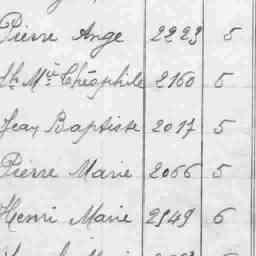 Pierre Ange 2223 5
Th. Mie Théophile 2160 5
Jean Baptiste 2017 5
Pierre Marie 2066 5
Henri Marie 2949 6